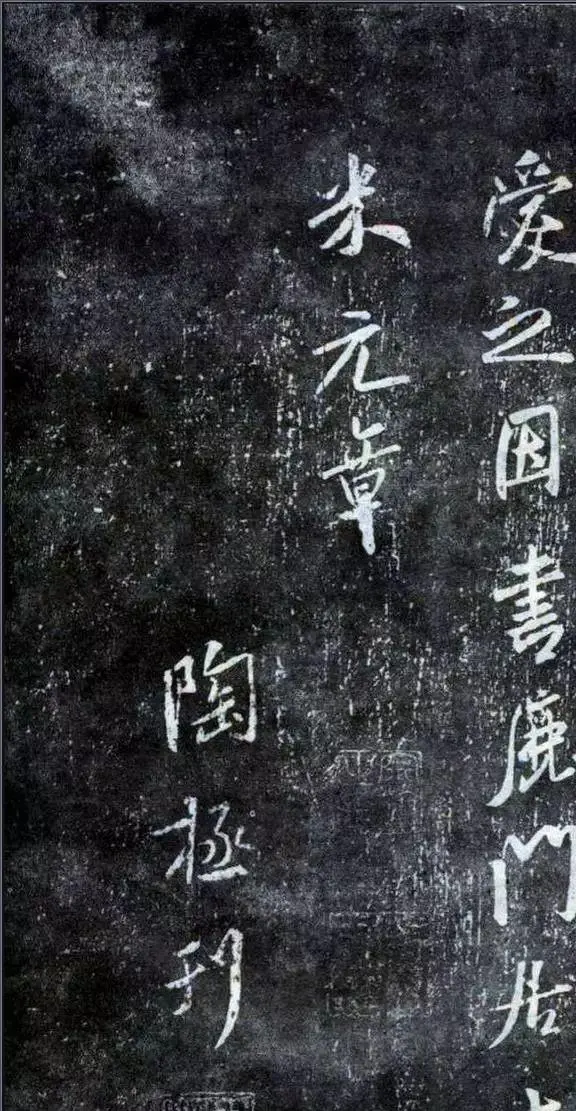 愛之因書鹿門居
米元章
陶極刊